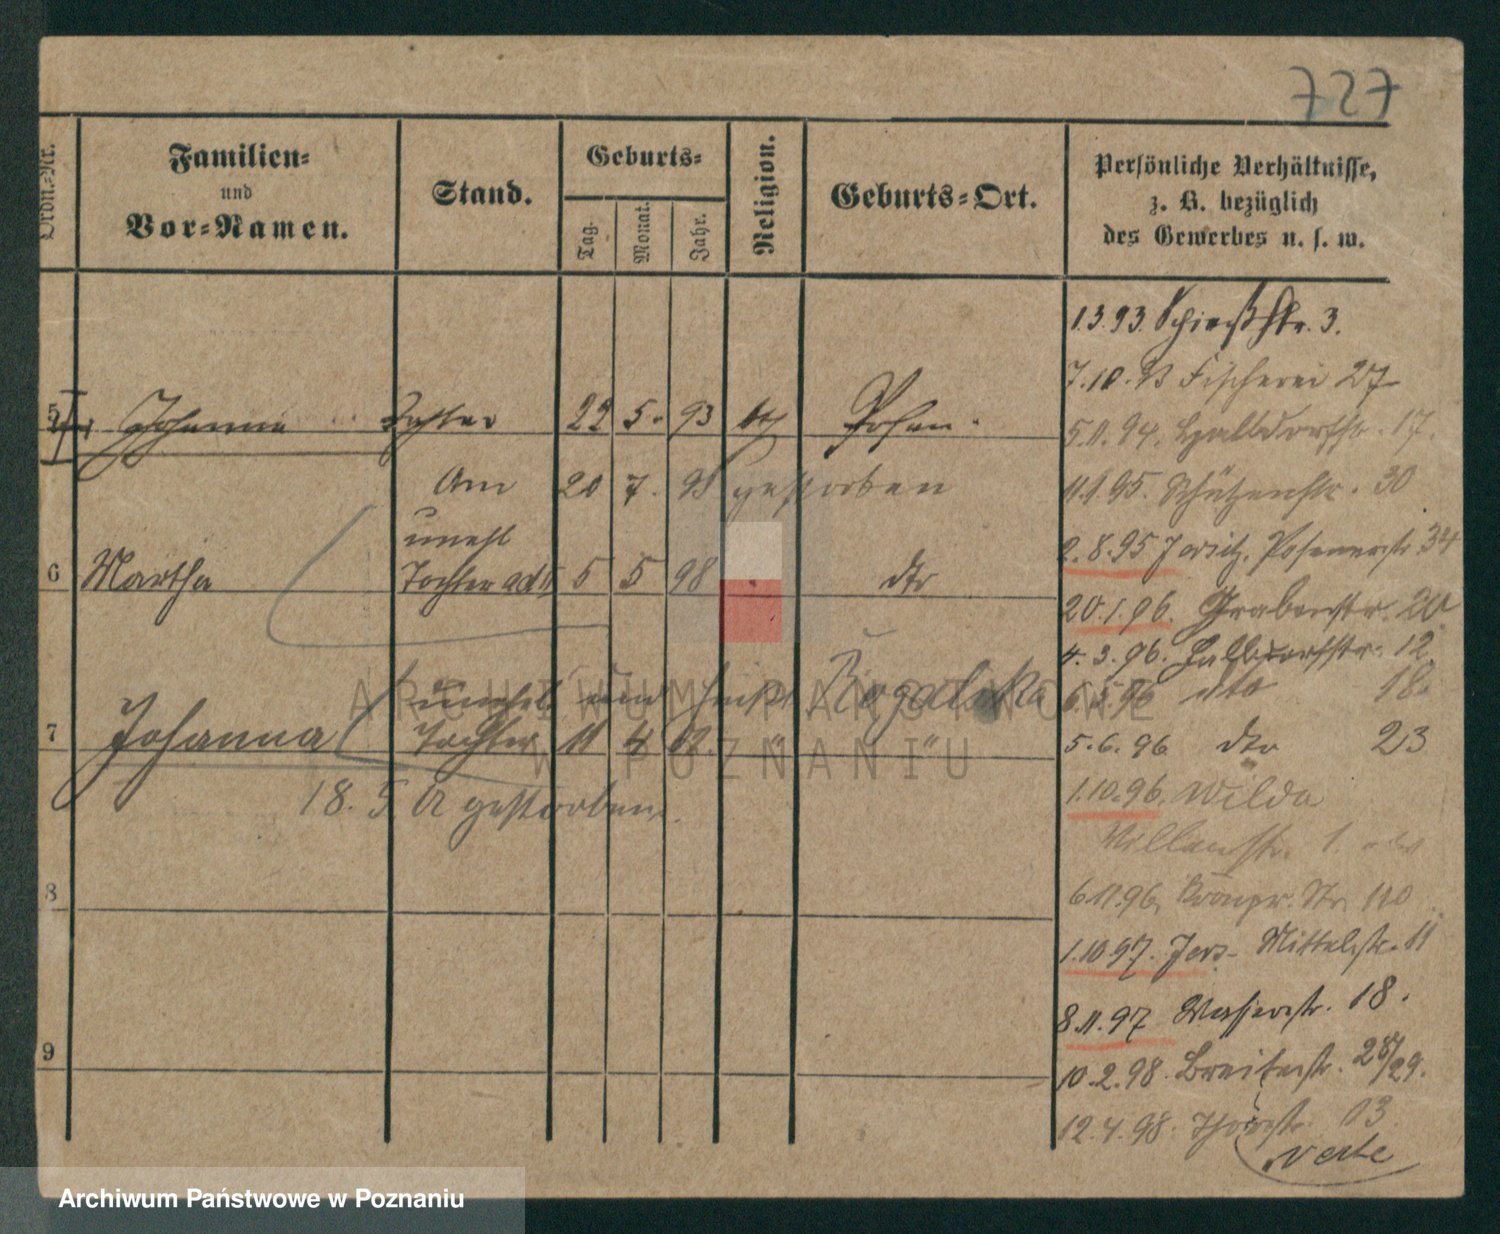 727
Ordn.-Nr.
Familien-
und
Vor-Namen.
Stand.
Geburts-
Tag.
Monat.
Jahr.
Religion.
Geburts-Ort.
Persönliche Verhältnisse,
z. B. bezüglich
des Gewerbes u. s. w.
1.3.93. Schießstr. 3.
7.10.93 Fischerei 27
5.11.94. Halbdorfstr. 17.
11.1.95. Schützenstr. 30
2.8.95 Jersitz, Posenerstr. 34
20.1.96. Grabenstr. 20
4.3.96. Halbdorfstr. 12
6.5.96 dto 18.
5.6.96 dto 23
1.10.96. Wilda
6.11.96. Kronpr. Str. 110
1.10.97. Jers. Mittelstr. 11
8.11.97 Wasserstr. 18.
10.2.98. Breitestr. 28/29.
12.4.98. 13.
verte
5 Johanna Tochter 22 5. 93 Posen.
Am 20 7. 93 gestorben
unehl
6 Martha Tochter ad 5 5 98 dto
unehel. Rogalska
7 Johanna Tochter 11 4 02. " "
18. 5 02 gestorben.
8
9
ARCHIWUM PAŃSTWOWE
W POZNANIU
Archiwum Państwowe w Poznaniu